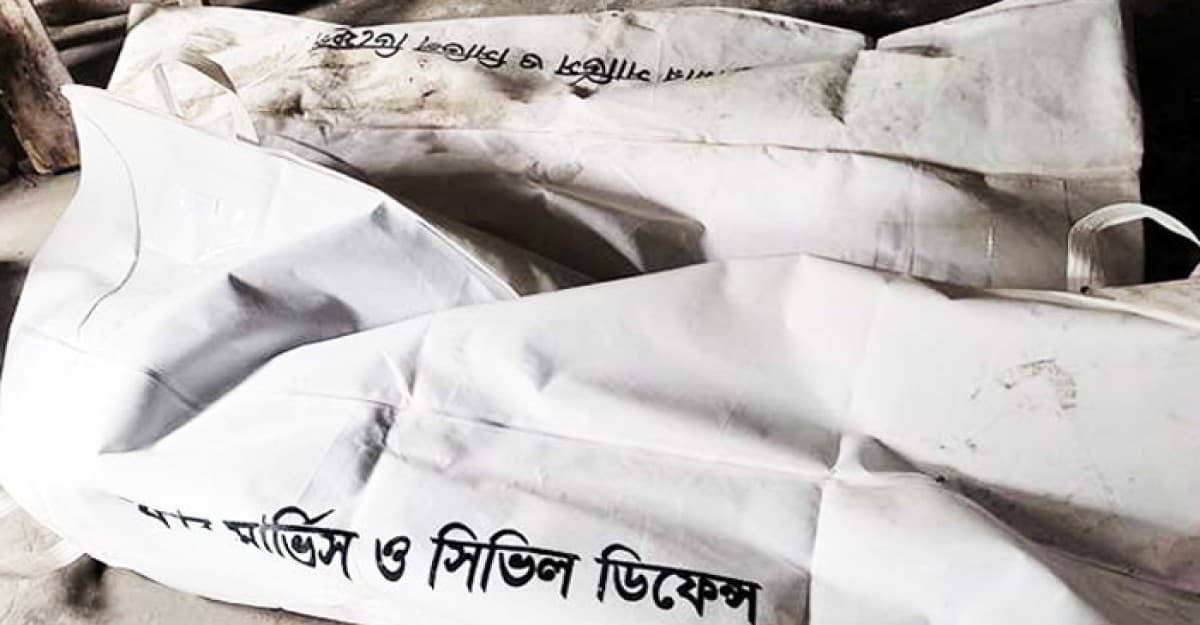 সার্ভিস ও সিভিল ডিফেন্স
সার্ভিস ও সিভিল ডিফেন্স